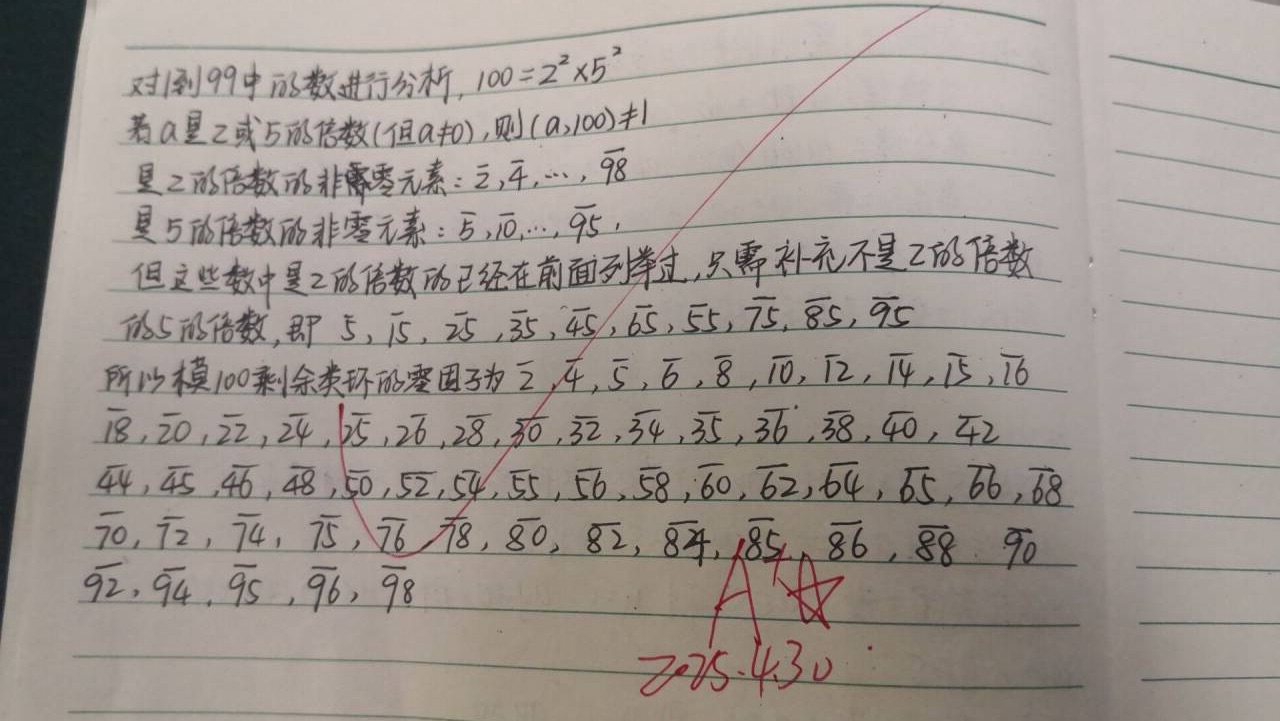 对1到99中的数进行分析, 100=2²×5²
若a是2或5的倍数(但a≠0),则(a,100)≠1
是2的倍数的非零元素: 2̅,4̅,…,9̅8̅
是5的倍数的非零元素: 5̅,1̅0̅,…,9̅5̅,
但这些数中是2的倍数的已经在前面列举过,只需补充不是2的倍数
的5的倍数,即 5̅,1̅5̅,2̅5̅,3̅5̅,4̅5̅,6̅5̅,5̅5̅,7̅5̅,8̅5̅,9̅5̅
所以模100剩余类环的零因子为 2̅,4̅,5̅,6̅,8̅,1̅0̅,1̅2̅,1̅4̅,1̅5̅,1̅6̅
1̅8̅,2̅0̅,2̅2̅,2̅4̅,2̅5̅,2̅6̅,2̅8̅,3̅0̅,3̅2̅,3̅4̅,3̅5̅,3̅6̅,3̅8̅,4̅0̅,4̅2̅
4̅4̅,4̅5̅,4̅6̅,4̅8̅,5̅0̅,5̅2̅,5̅4̅,5̅5̅,5̅6̅,5̅8̅,6̅0̅,6̅2̅,6̅4̅,6̅5̅,6̅6̅,6̅8̅
7̅0̅,7̅2̅,7̅4̅,7̅5̅,7̅6̅,7̅8̅,8̅0̅,8̅2̅,8̅4̅,8̅5̅,8̅6̅,8̅8̅ 9̅0̅
9̅2̅,9̅4̅,9̅5̅,9̅6̅,9̅8̅
A⁺☆
2025.4.30